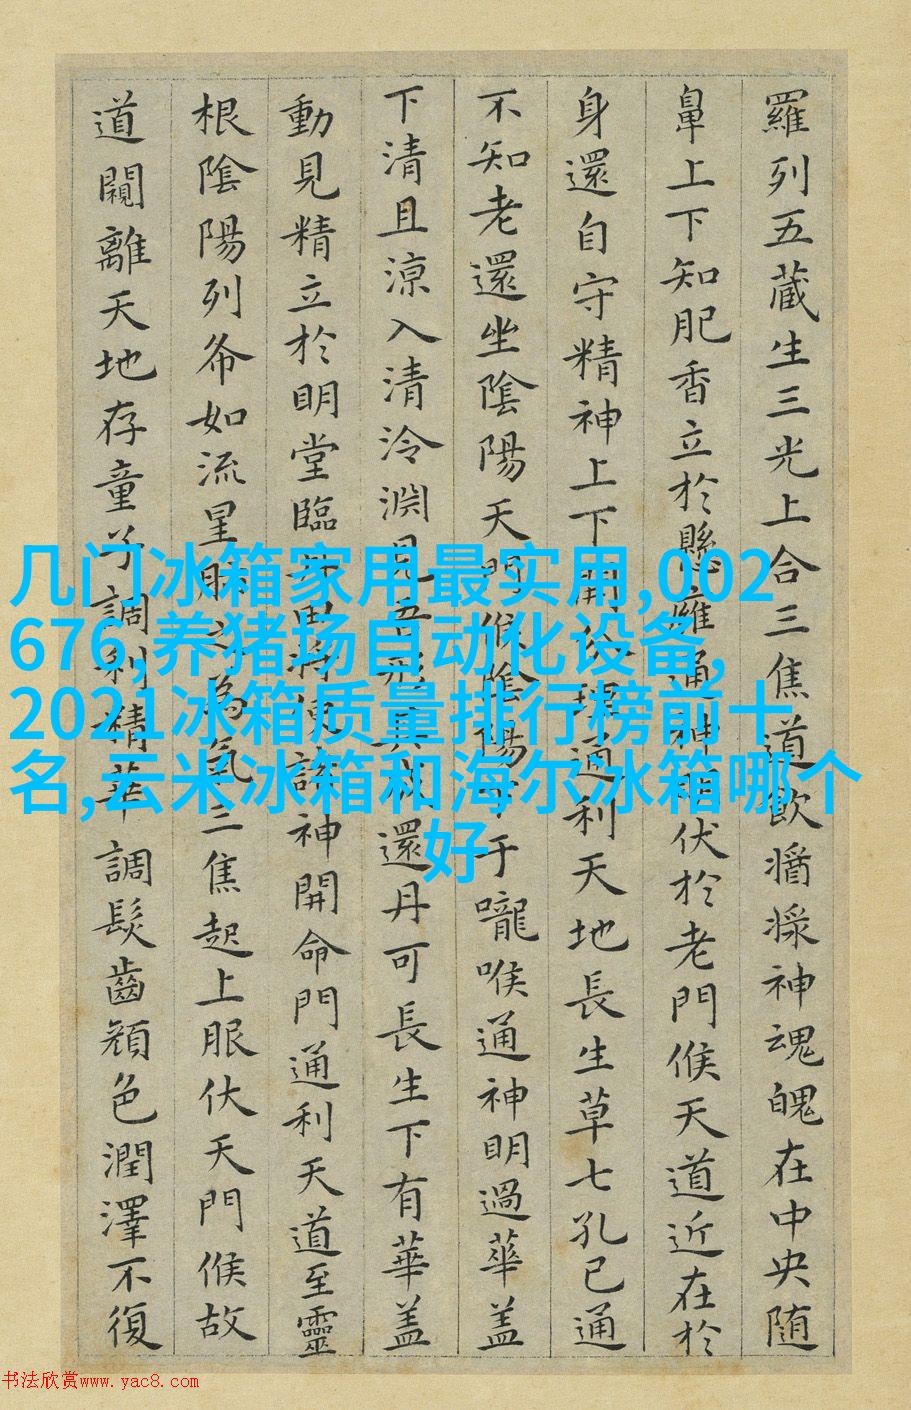 羅列五藏生三光上合三焦道飲醬漿神魂魄在中央随
鼻上下知肥香立於懸雍通神明伏於老門候天道近在於
身還自守精神上下開分理通利天地長生草七孔已通
不知老還坐陰陽天門候陰陽下于嚨喉通神明過華盖
下清且涼入清泠淵見吾形其成還丹可長生下有華盖
動見精立於明堂臨丹田將使諸神開命門通利天道至靈
根陰陽列布如流星肺之為氣三焦起上服伏天門候故
道闚離天地存童子調利精華調髮齒顏色潤澤不復
几门冰箱家用最实用,002
676,养猪场自动化设备,
2021冰箱质量排行榜前十
名,云米冰箱和海尔冰箱哪个
好
书法欣赏www.yac8.com